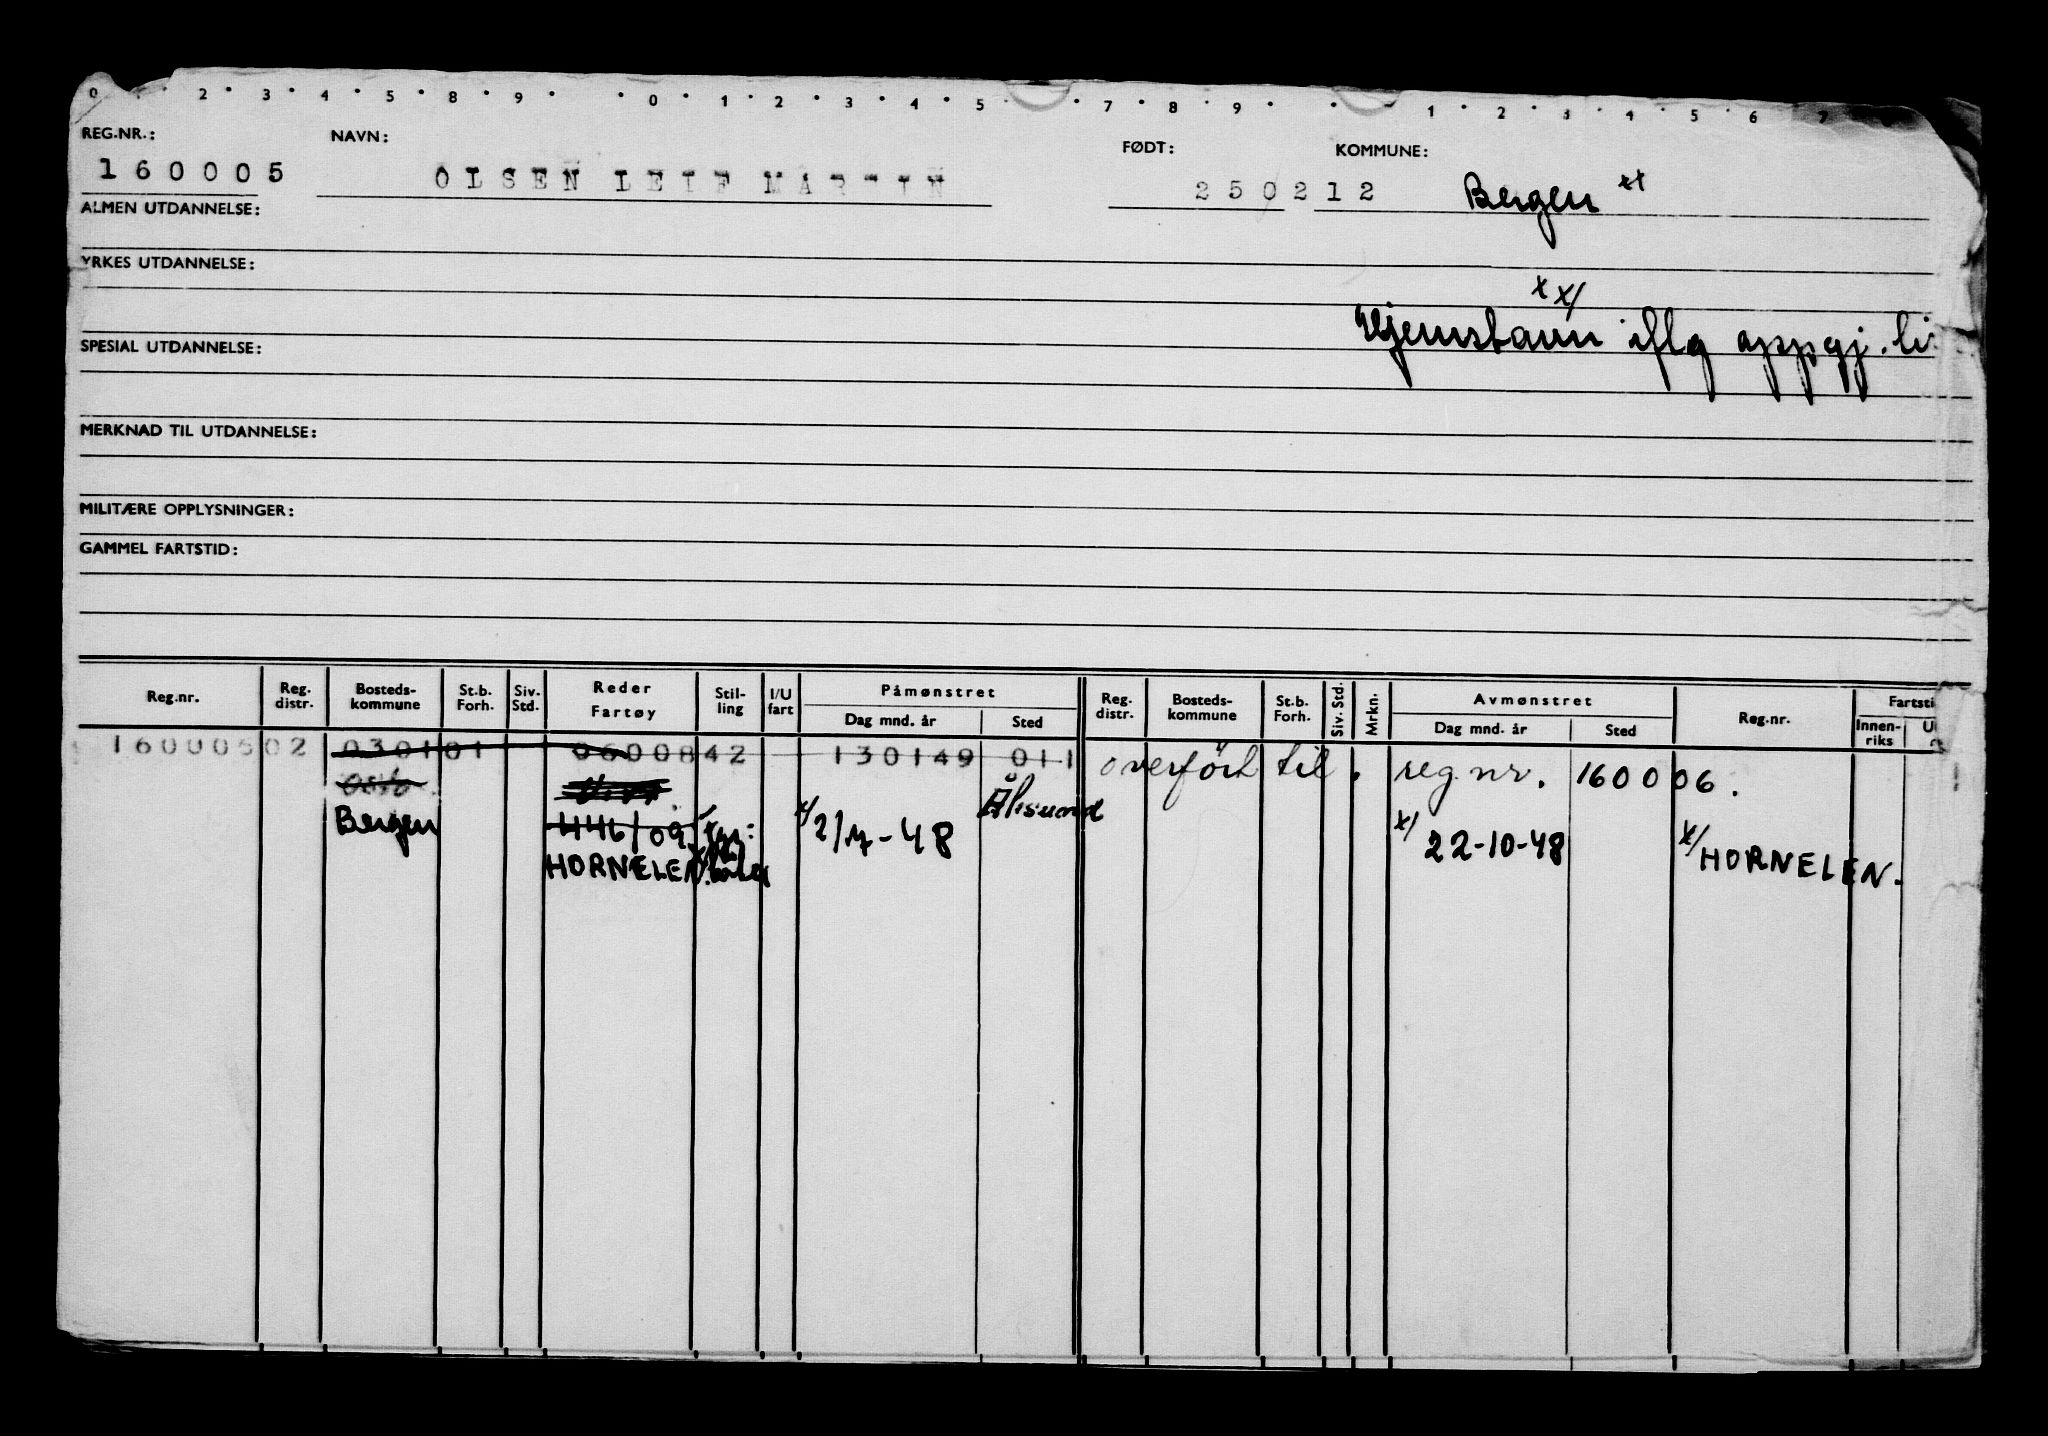 0 2 3 4 5 8 9 0 1 2 3 4 5 7 8 9 1 2 3 4 5 6 7
REG.NR.: NAVN: FØDT: KOMMUNE:
160005 OLSEN LEIF MARTIN 250212 Bergen xx
ALMEN UTDANNELSE:
YRKES UTDANNELSE:
xx/
Hjemstavn iflg oppgj. li
SPESIAL UTDANNELSE:
MERKNAD TIL UTDANNELSE:
MILITÆRE OPPLYSNINGER:
GAMMEL FARTSTID:
Reg.nr. Reg. distr. Bosteds-kommune St.b. Forh. Siv. Std. Reder Fartøy Stil-ling I/U fart Påmønstret Dag mnd. år Sted Reg. distr. Bosteds-kommune St.b. Forh. Siv. Std. Mrkn. Avmønstret Dag mnd. år Sted Reg.nr. Fartsti Innen-riks U
16000502 030101 0600842 130149 011 overført til. reg nr. 160006.
Oslo
Ålesund
Bergen 446/09 x/ 2/7-48 x/ 22-10-48 x/ HORNELEN.
HORNELEN